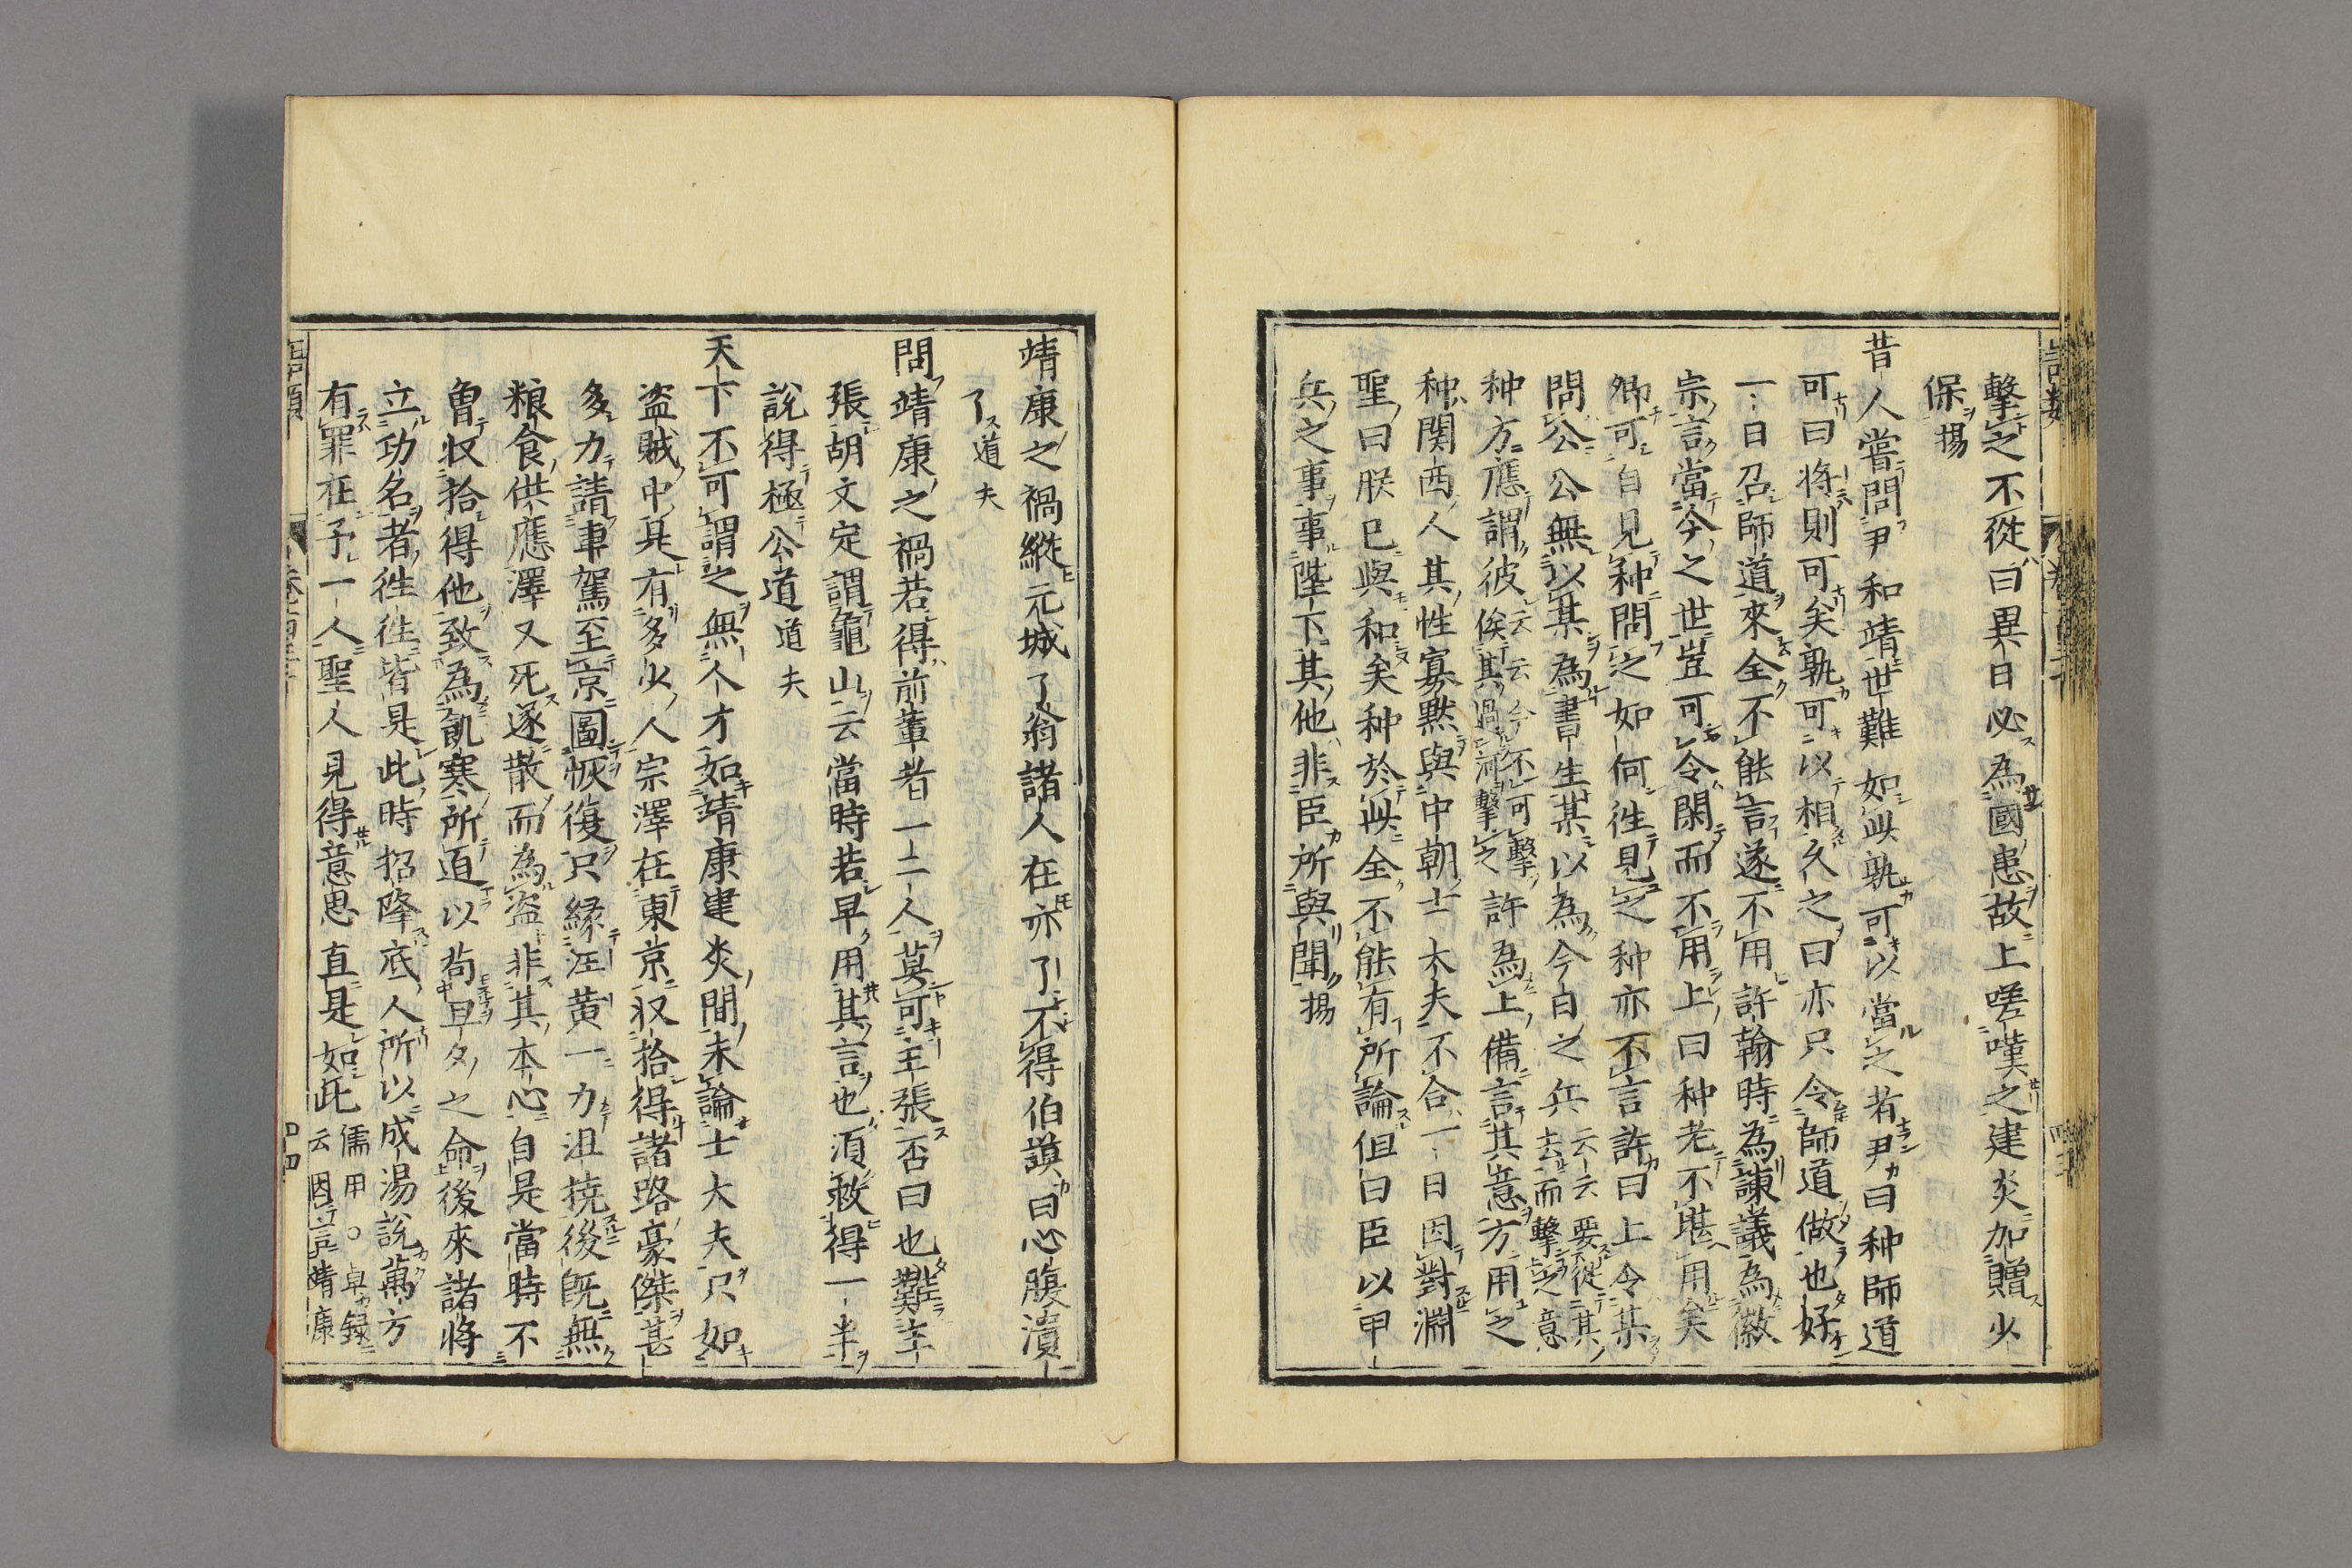 擊之不從曰異日必為國患故上嗟嘆之建炎加贈少
保揚
昔人嘗問尹和靖世難如此孰可以當之者尹曰种師道
可曰將則可矣孰可以相久之曰亦只令師道做也好
一日召師道來全不能言遂不用許翰時為諫議為徽
宗言當今之世豈可令閑而不用上曰种老不堪用矣
卿可自見种問之如何徃見之种亦不言許曰上令某
問公公無以某為書生某以為今白之兵云云要從其去而擊之意
种方應謂彼云云今不可擊俟其過河擊之許為上備言其意方用之
种関西人其性寡黙與中朝士大夫不合一日因對淵
聖曰朕已與和矣种於此全不能有所論但曰臣以甲
兵之事事陛下其他非臣所與聞揚
靖康之禍縱元城了翁諸人在亦了不得伯謨曰心腹潰
了道夫
問靖康之禍若得前輩者一二人莫可主張否曰也難主
張胡文定謂龜山云當時若早用其言也須救得一半
說得極公道道夫
天下不可謂之無人才如靖康建炎間未論士大夫只如
盗賊中是有多少人宗澤在東京収拾得諸路豪傑甚
多力請車駕至京圖恢復只縁汪黄一力沮撓後旣無
粮食供應澤又死遂散而為盗非其本心自是當時不
曽収拾得他致為飢寒所逼以苟旦夕之命後來諸將
立功名者徃徃皆是此時招降底人所以成湯說萬方
有罪在予一人聖人見得意思直是如此儒用○卓録云因言靖康